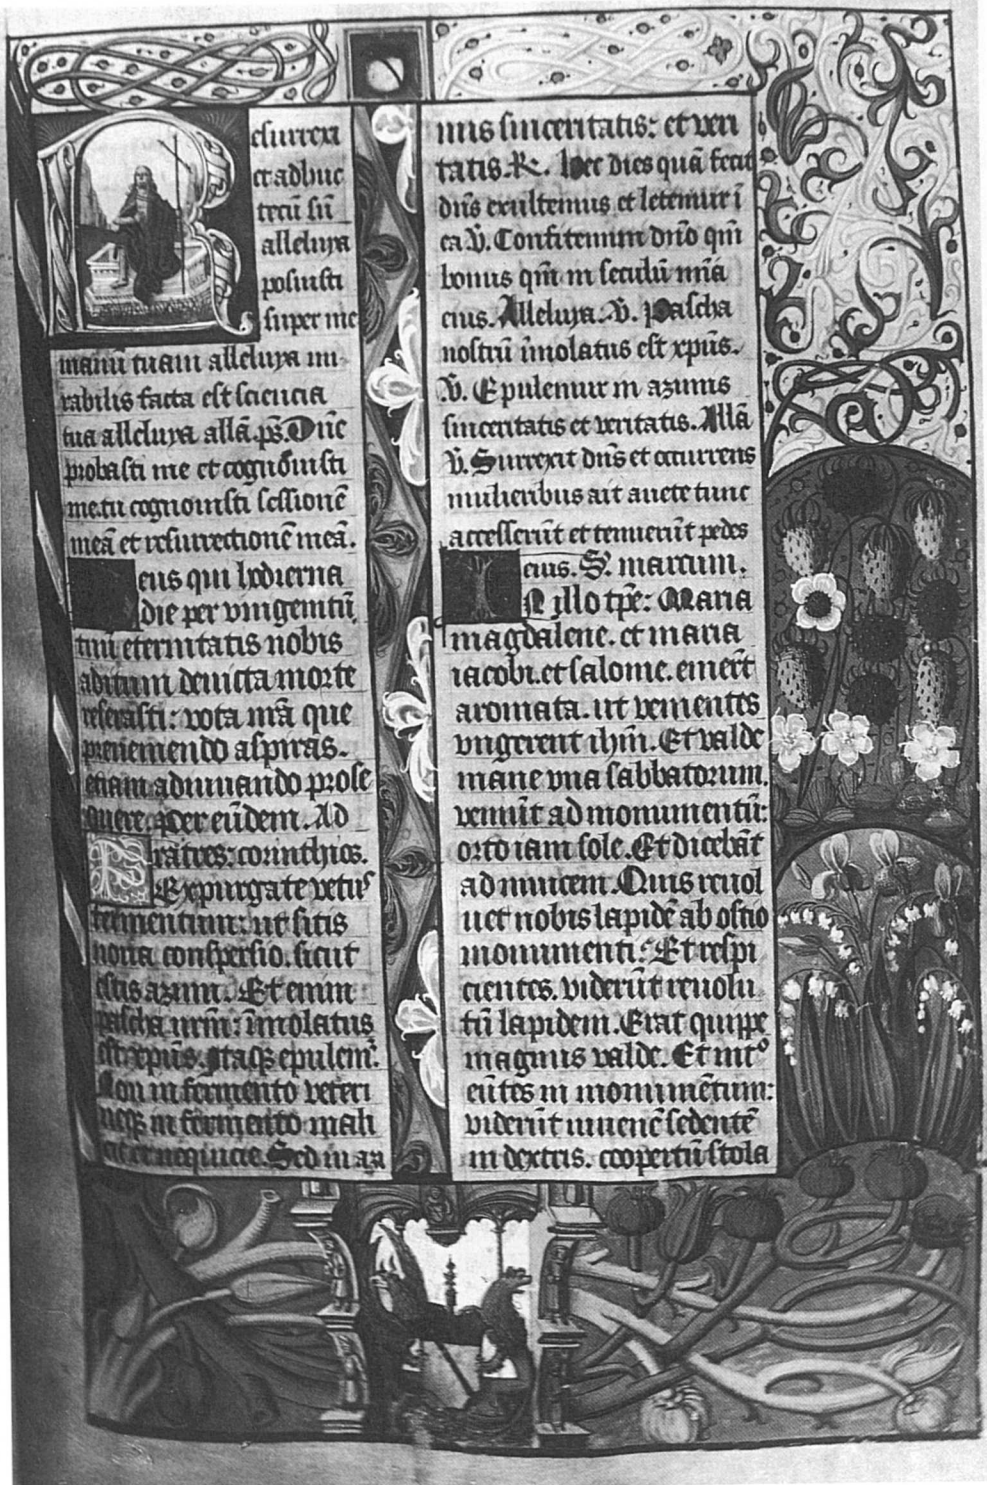 Resurrexi
et adhuc
tecū sū
alleluya
posuisti
super me
manū tuam alleluya mi
rabilis facta est sciencia
tua alleluya allā. ps̄. Dn̄e
probasti me et cognouisti
me. tu cognouisti sessionē
meā et resurrectionē meā.
Deus qui hodierna
die per vnigenitū
tuū eternitatis nobis
aditum deuicta morte
reserasti: vota nr̄a que
preueniendo aspiras.
etiam adiuuando prose
quere. per eūdem. Ad
Fratres: corinthios.
Expurgate vetus
fermentum: ut sitis
noua conspersio. sicut
estis azimi. Et enim
pascha nrm̄: īmolatus
est xpūs. Itaqȝ epulem̄.
Non in fermento veteri
neqȝ in fermento mali
cie et nequicie. Sed in azi
mis sinceritatis: et veri
tatis. R. Hec dies quā fecit
dn̄s exultemus et letemur ī
ea V̄. Confitemini dn̄o qm̄
bonus qm̄ in seculū mīa
eius. Alleluya. V̄. Pascha
nostrū īmolatus est xpūs.
V̄. Epulemur in azimis
sinceritatis et veritatis. Allā
V̄. Surrexit dn̄s et occurrens
mulieribus ait auete tunc
accesserūt et tenuerūt pedes
eius. S. marcum.
In illo tp̄e: Maria
magdalene. et maria
iacobi. et salome. emerūt
aromata. ut venientes
vngerent ihm̄. Et valde
mane vna sabbatorum.
veniūt ad monumentū:
orto iam sole. Et dicebāt
ad inuicem. Quis reuol
uet nobis lapidē ab ostio
monumenti: Et respi
cientes. viderūt reuolu
tū lapidem. Erat quippe
magnus valde. Et intᵒ
eūtes in monumētum:
viderūt iuuenē sedentē
in dextris. coopertū stola